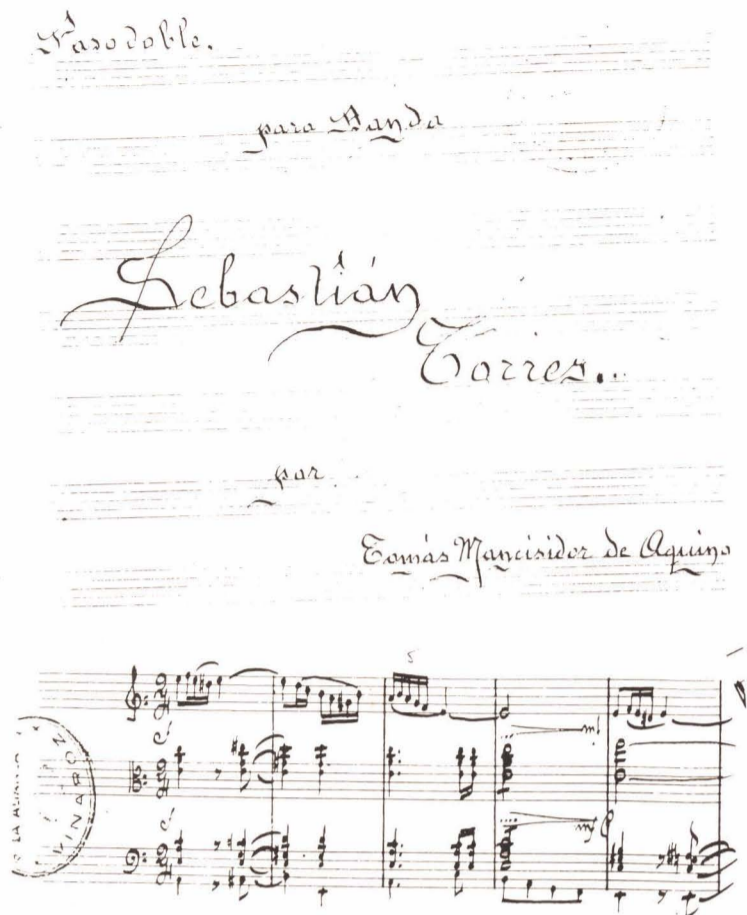 Pasodoble.
para Banda
Sebastián
Torres..
por
Tomás Mancisidor de Aquino
5
mf
mf
LA ALIANZA
VINAROZ